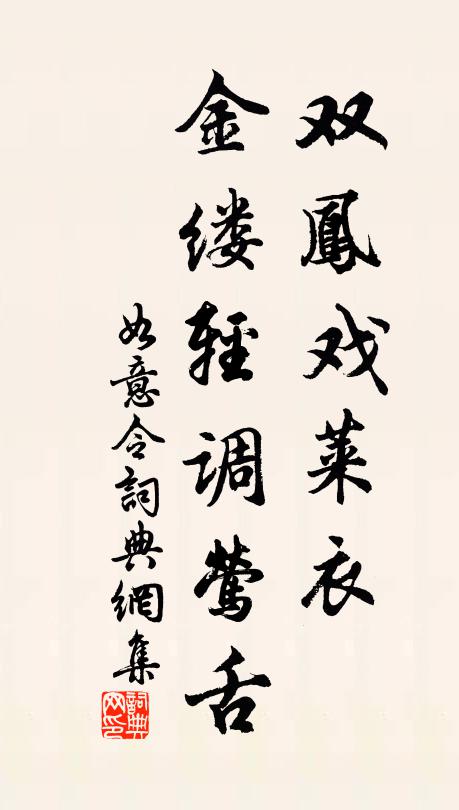 双鳳戏莱衣
金缕輕调莺舌
如意令詞典網集
詞典網印